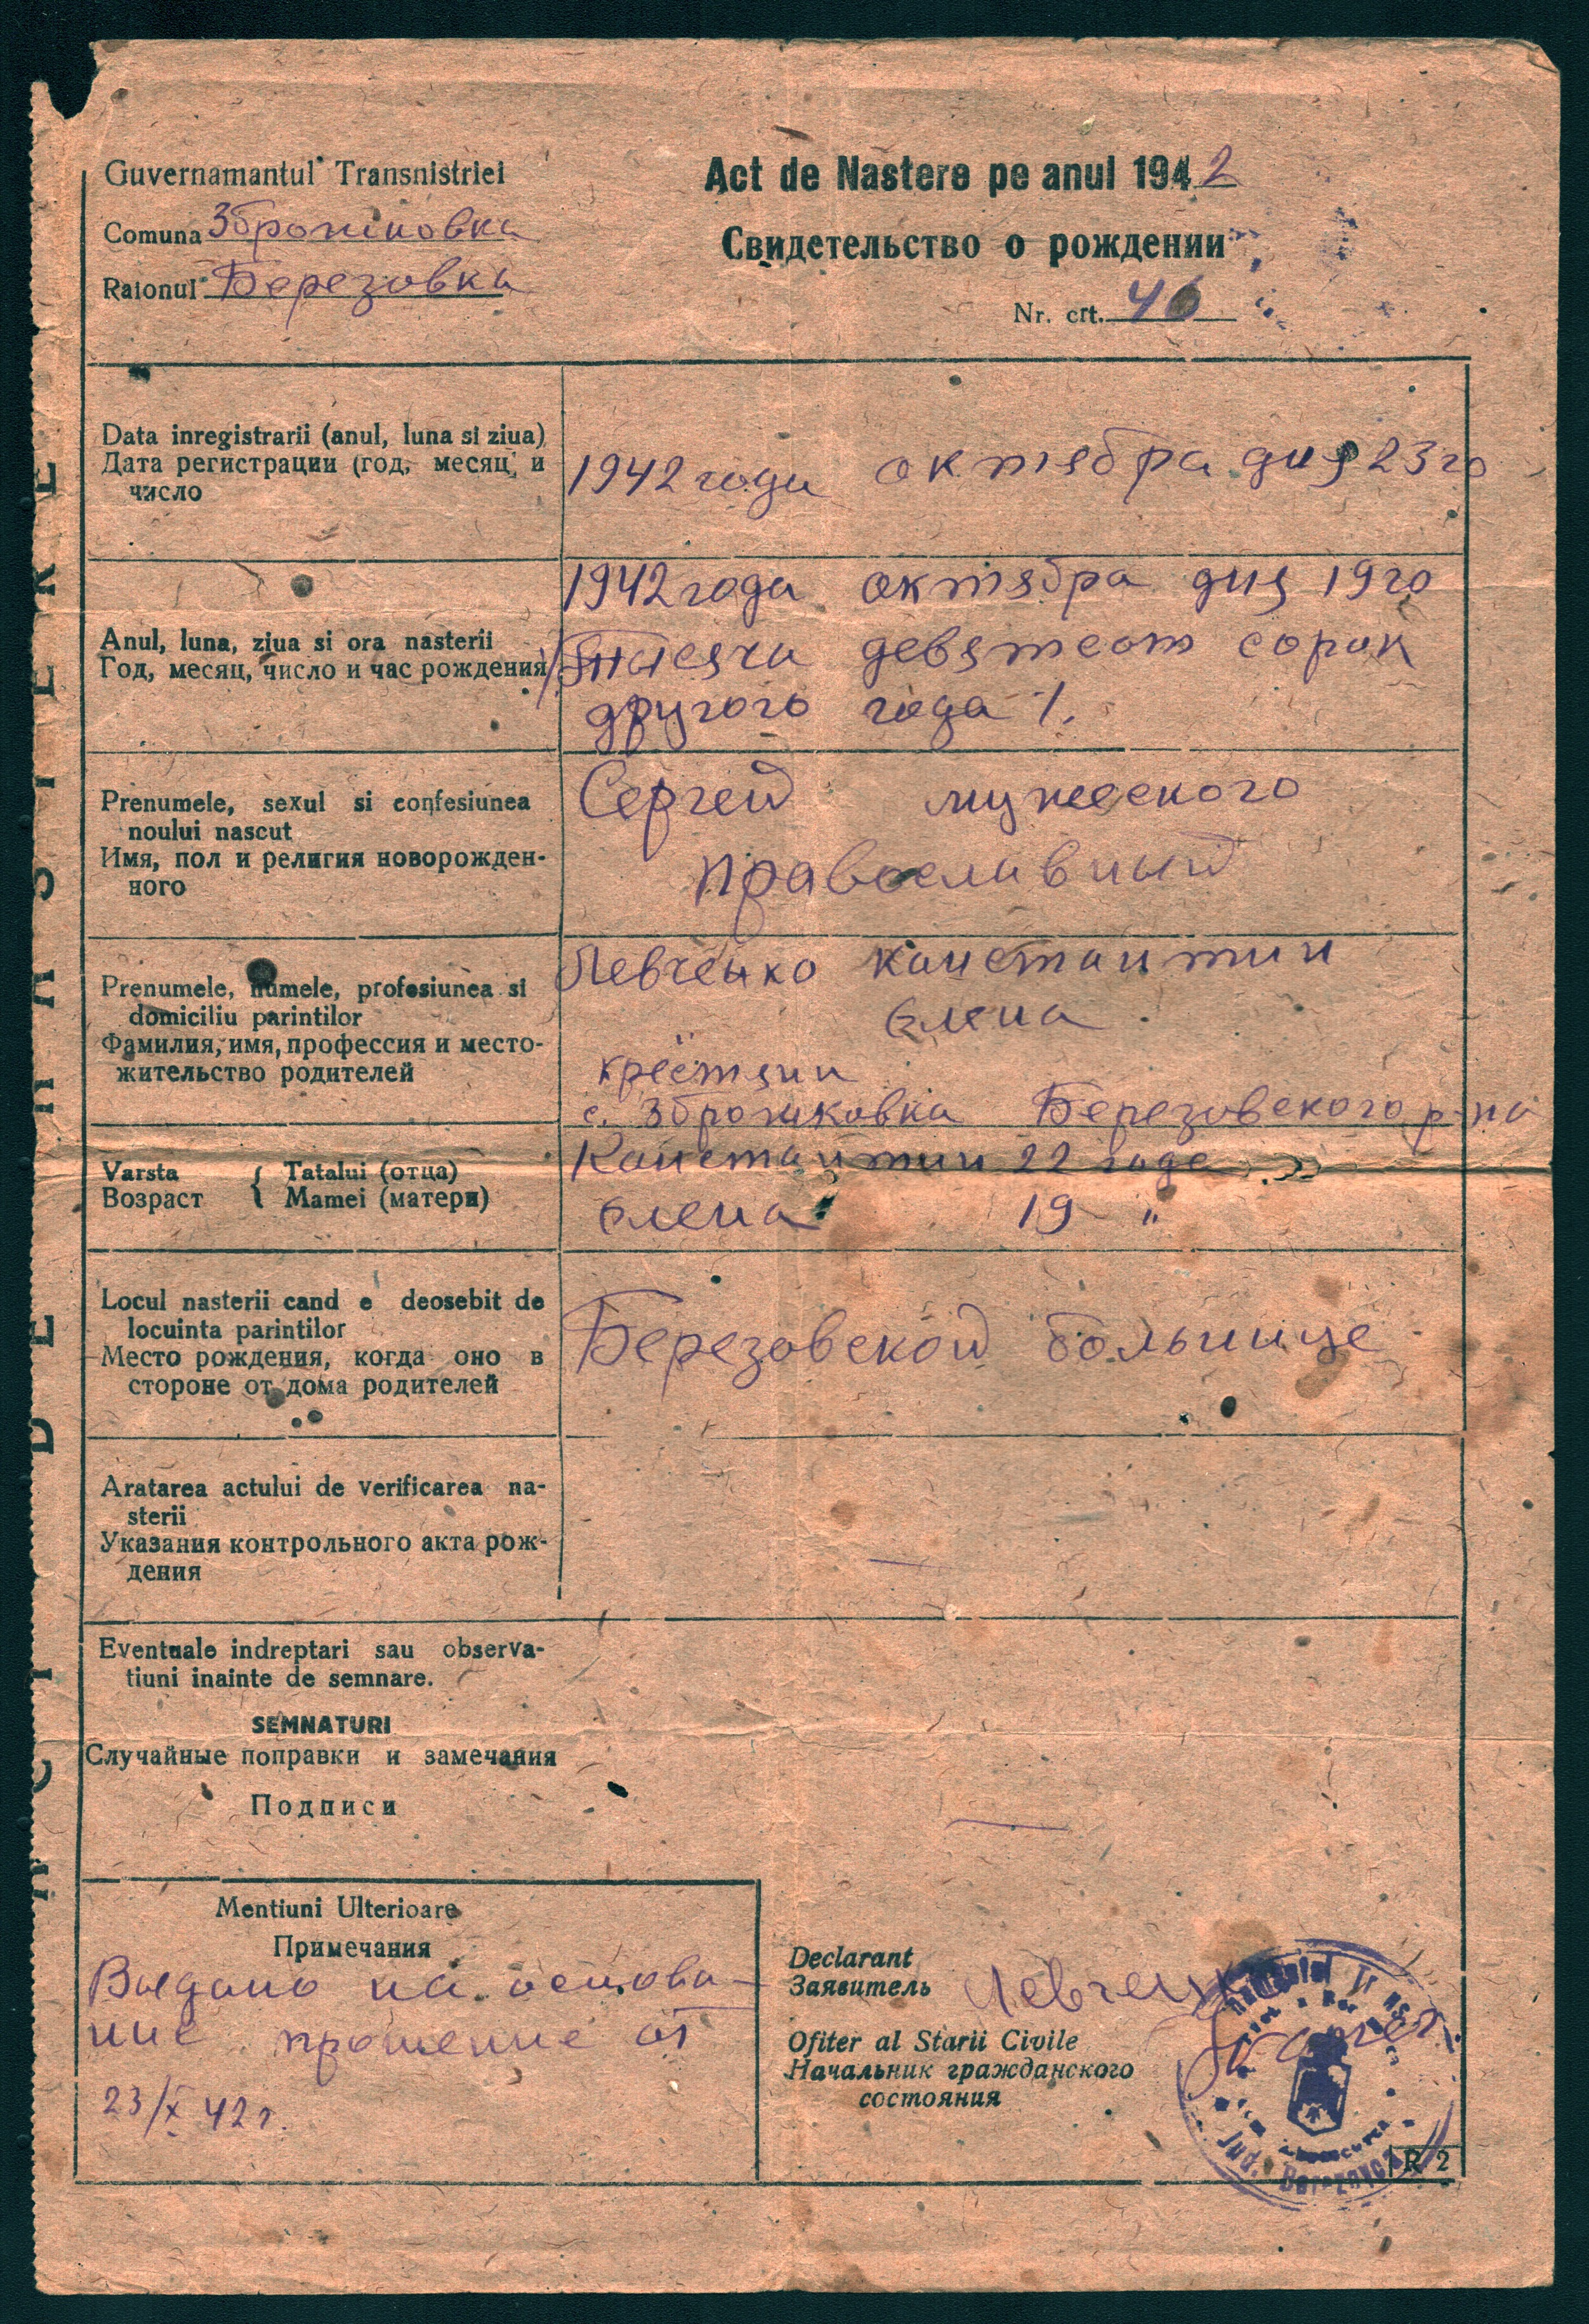 Guvernamantul Transnistriei
Comuna Зброшковка
Raionul Березовка
Act de Nastere pe anul 1942
Свидетельство о рождении
Nr. crt. 46
Data inregistrarii (anul, luna si ziua)
Дата регистрации (год, месяц и
число
1942 года октября дня 23го
Anul, luna, ziua si ora nasterii
Год, месяц, число и час рождения
1942 года октября дня 19го
/Тысяча девятсот сорок
другого года/.
Prenumele, sexul si confesiunea
noului nascut
Имя, пол и религия новорожден-
ного
Сергей мужеского
православный
Prenumele, numele, profesiunea si
domiciliu parintilor
Фамилия, имя, профессия и место-
жительство родителей
Левченко Констаптин
Елена
крестяни
с. Зброшковка Березовского р-на
Varsta { Tatalui (отца)
Возраст Mamei (матери)
Константин 22 года
Елена 19 "
Locul nasterii cand e deosebit de
locuinta parintilor
Место рождения, когда оно в
стороне от дома родителей
Березовской больнице
Aratarea actului de verificarea na-
sterii
Указания контрольного акта рож-
дения
Eventuale indreptari sau observa-
tiuni inainte de semnare.
SEMNATURI
Случайные поправки и замечания
Подписи
Mentiuni Ulterioare
Примечания
Выдано на основа-
ние прошение от
23/X 42 г.
Declarant
Заявитель Левченко
Ofiter al Starii Civile
Начальник гражданского
состояния
Jud. Berezovca
R 2